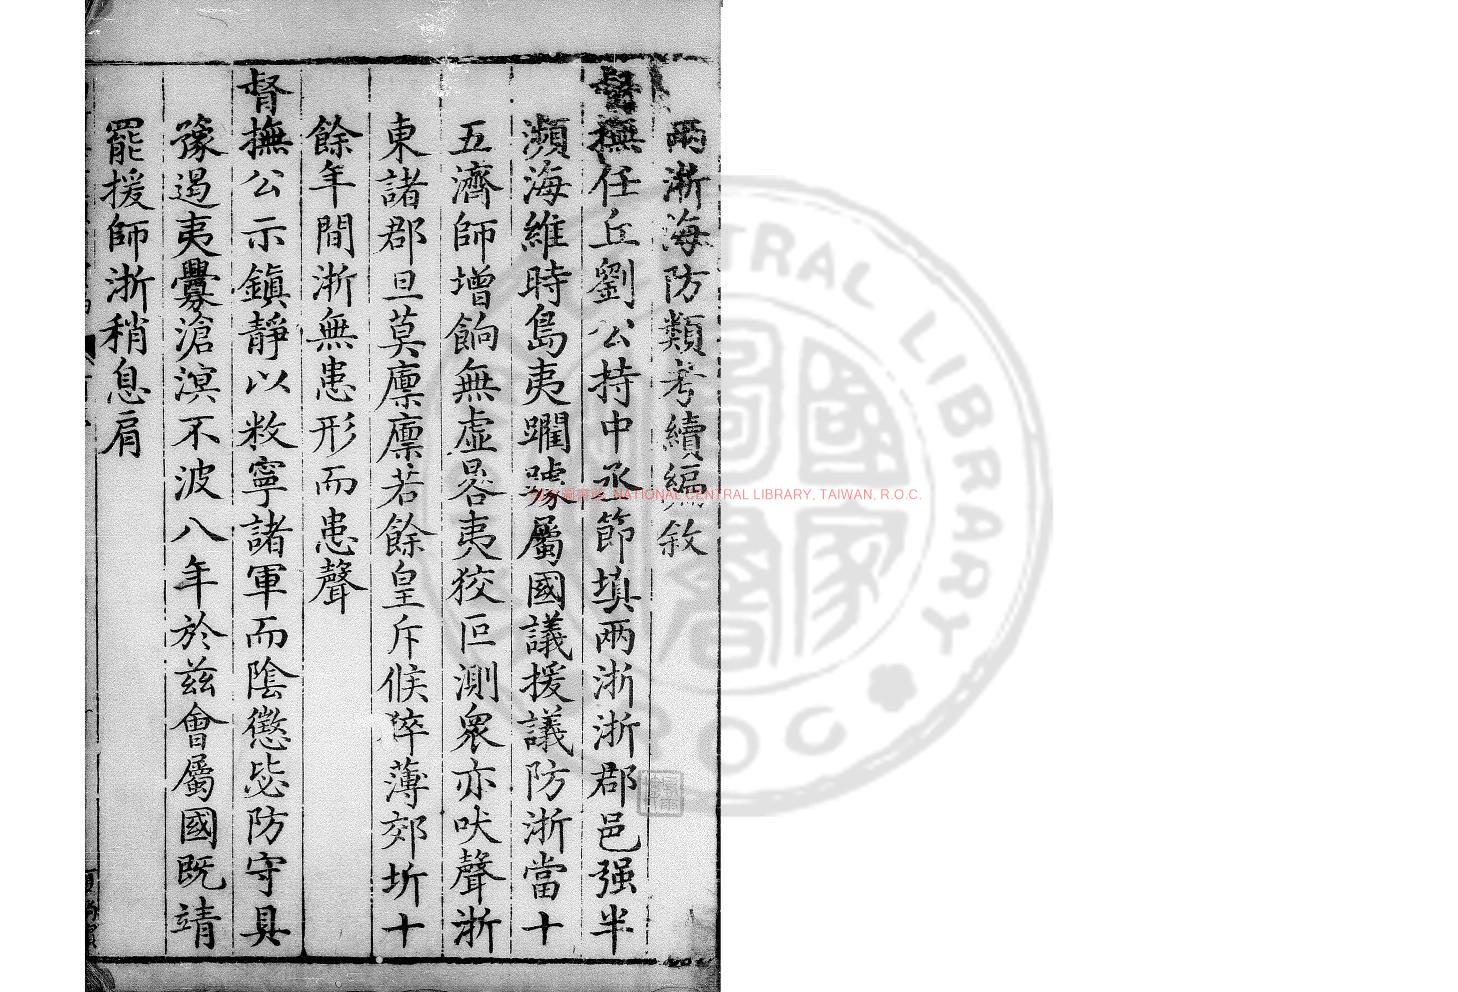 兩浙海防類考續編敘
督撫任丘劉公持中丞節填兩浙浙郡邑强半
瀕海維時島夷躙𨇠屬國議援議防浙當十
五濟師增餉無虛晷夷狡叵測衆亦吠聲浙
東諸郡旦莫廩廩若餘皇斥候猝薄郊圻十
餘年間浙無患形而患聲
督撫公示鎮靜以敉寧諸軍而陰懲毖防守具
豫遏夷釁滄溟不波八年於茲會屬國既靖
罷援師浙稍息肩
NATIONAL CENTRAL LIBRARY, TAIWAN, R.O.C.
CENTRAL LIBRARY
ROC
國家圖書